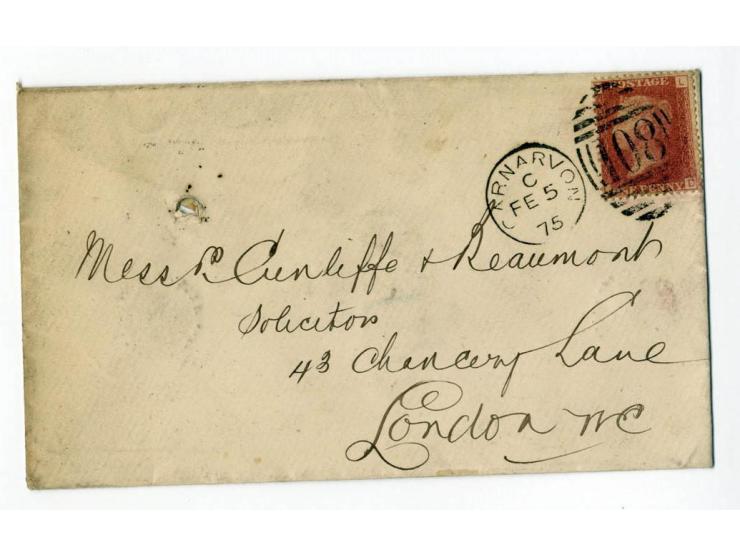 POSTAGE
L
108
E
ONE PENNY
CARNARVON
C
FE 5
75
Messrs Cunliffe & Beaumont
Solicitors
43 Chancery Lane
London WC